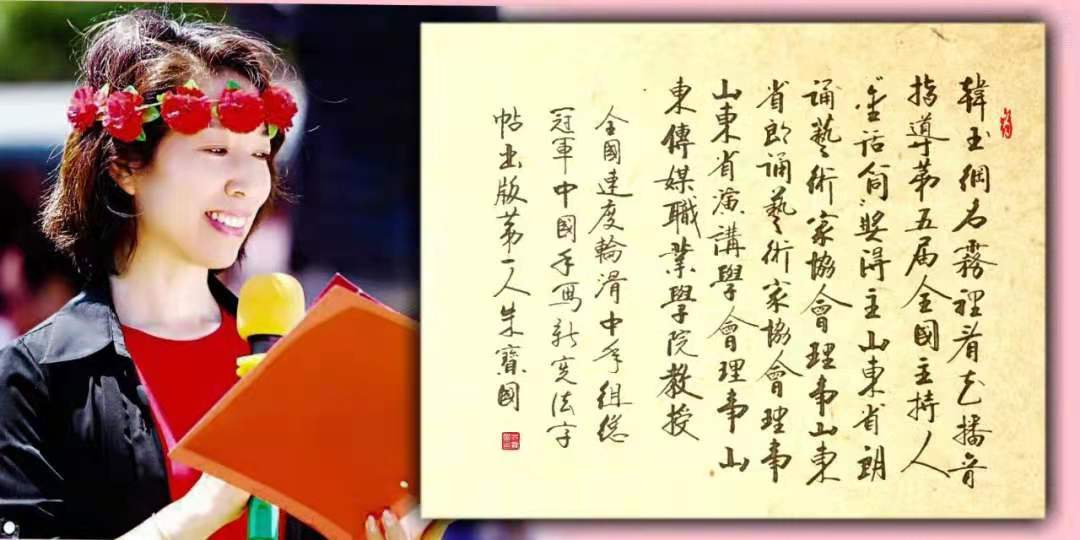 韓玉網名霧裡看花播音
指導第五届全國主持人
金话筒奬得主山東省朗
誦藝術家協會理事山東
省朗誦藝術家協會理事
山東省演講學會理事山
東傳媒職業學院教授
全國速度輪滑中年組總
冠軍中國手寫新憲法字
帖出版第一人朱寶國